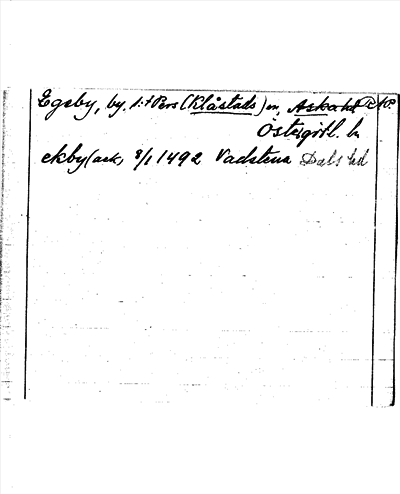 Egsby, by, S:t Pers (Klåstads) sn, Aska hd
Östergötl. l.
ekby (ack, 8/1 1492 Vadstena Dals hd